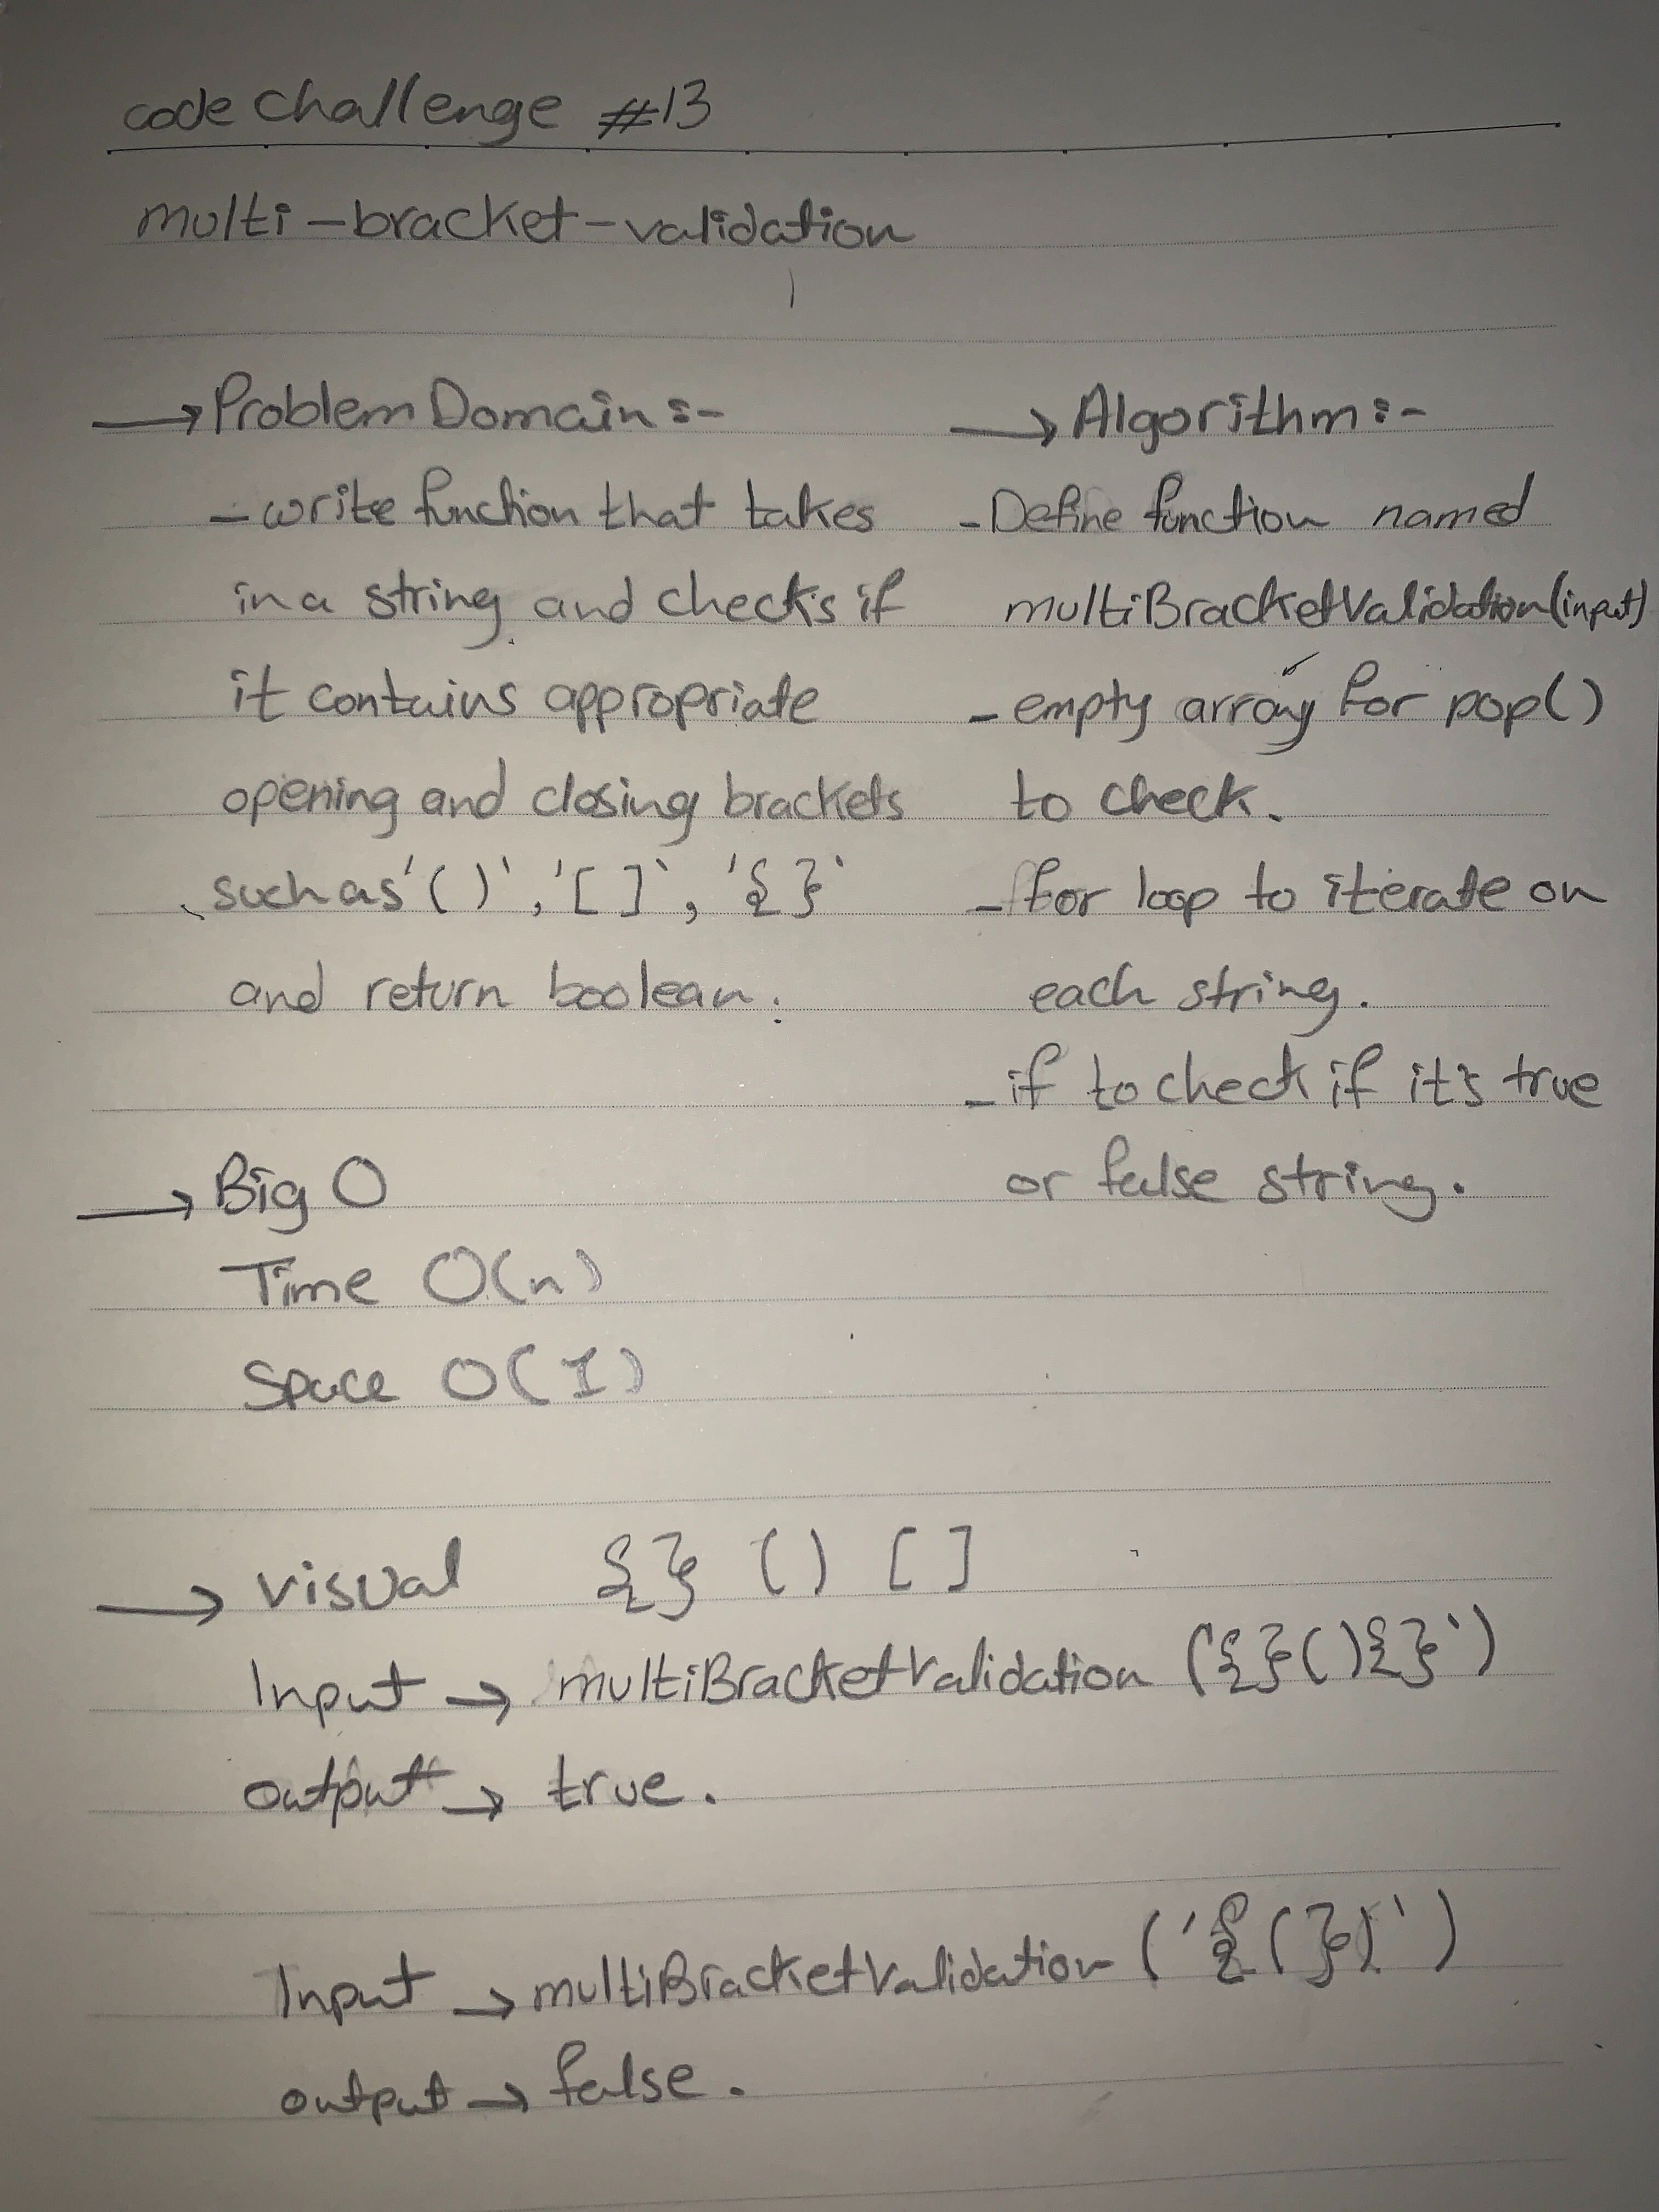 code challenge #13
multi-bracket-validation
→ Problem Domain :-
- write function that takes
in a string and checks if
it contains appropriate
opening and closing brackets
such as '()', '[]', '{}'
and return boolean.
→ Algorithm :-
- Define function named
multiBracketValidation(input)
- empty array for pop()
to check.
- for loop to iterate on
each string.
- if to check if it's true
or false string.
→ Big O
Time O(n)
Space O(1)
→ visual {} () []
Input → multiBracketValidation ('{}(){}')
output → true.
Input → multiBracketValidation ('{(})')
output → false.